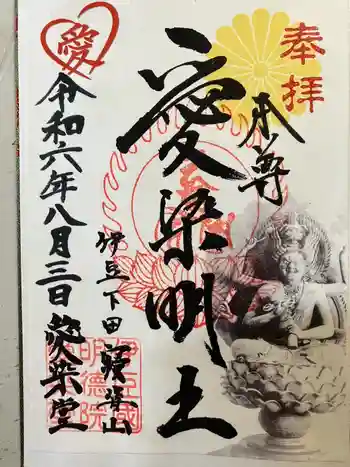 奉拝
本尊
愛染明王
伊豆下田
愛染堂
令和六年八月三日
愛